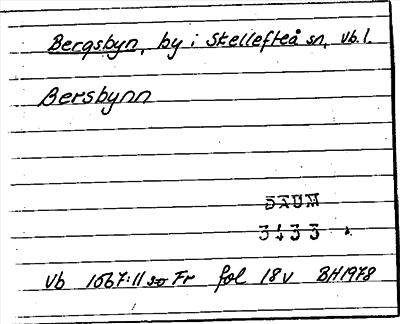 Bergsbyn, by i Skellefteå sn, Vb. l.
Bersbynn
DAUM
3433
Vb 1667:11 so Fr fol 18v BH1978